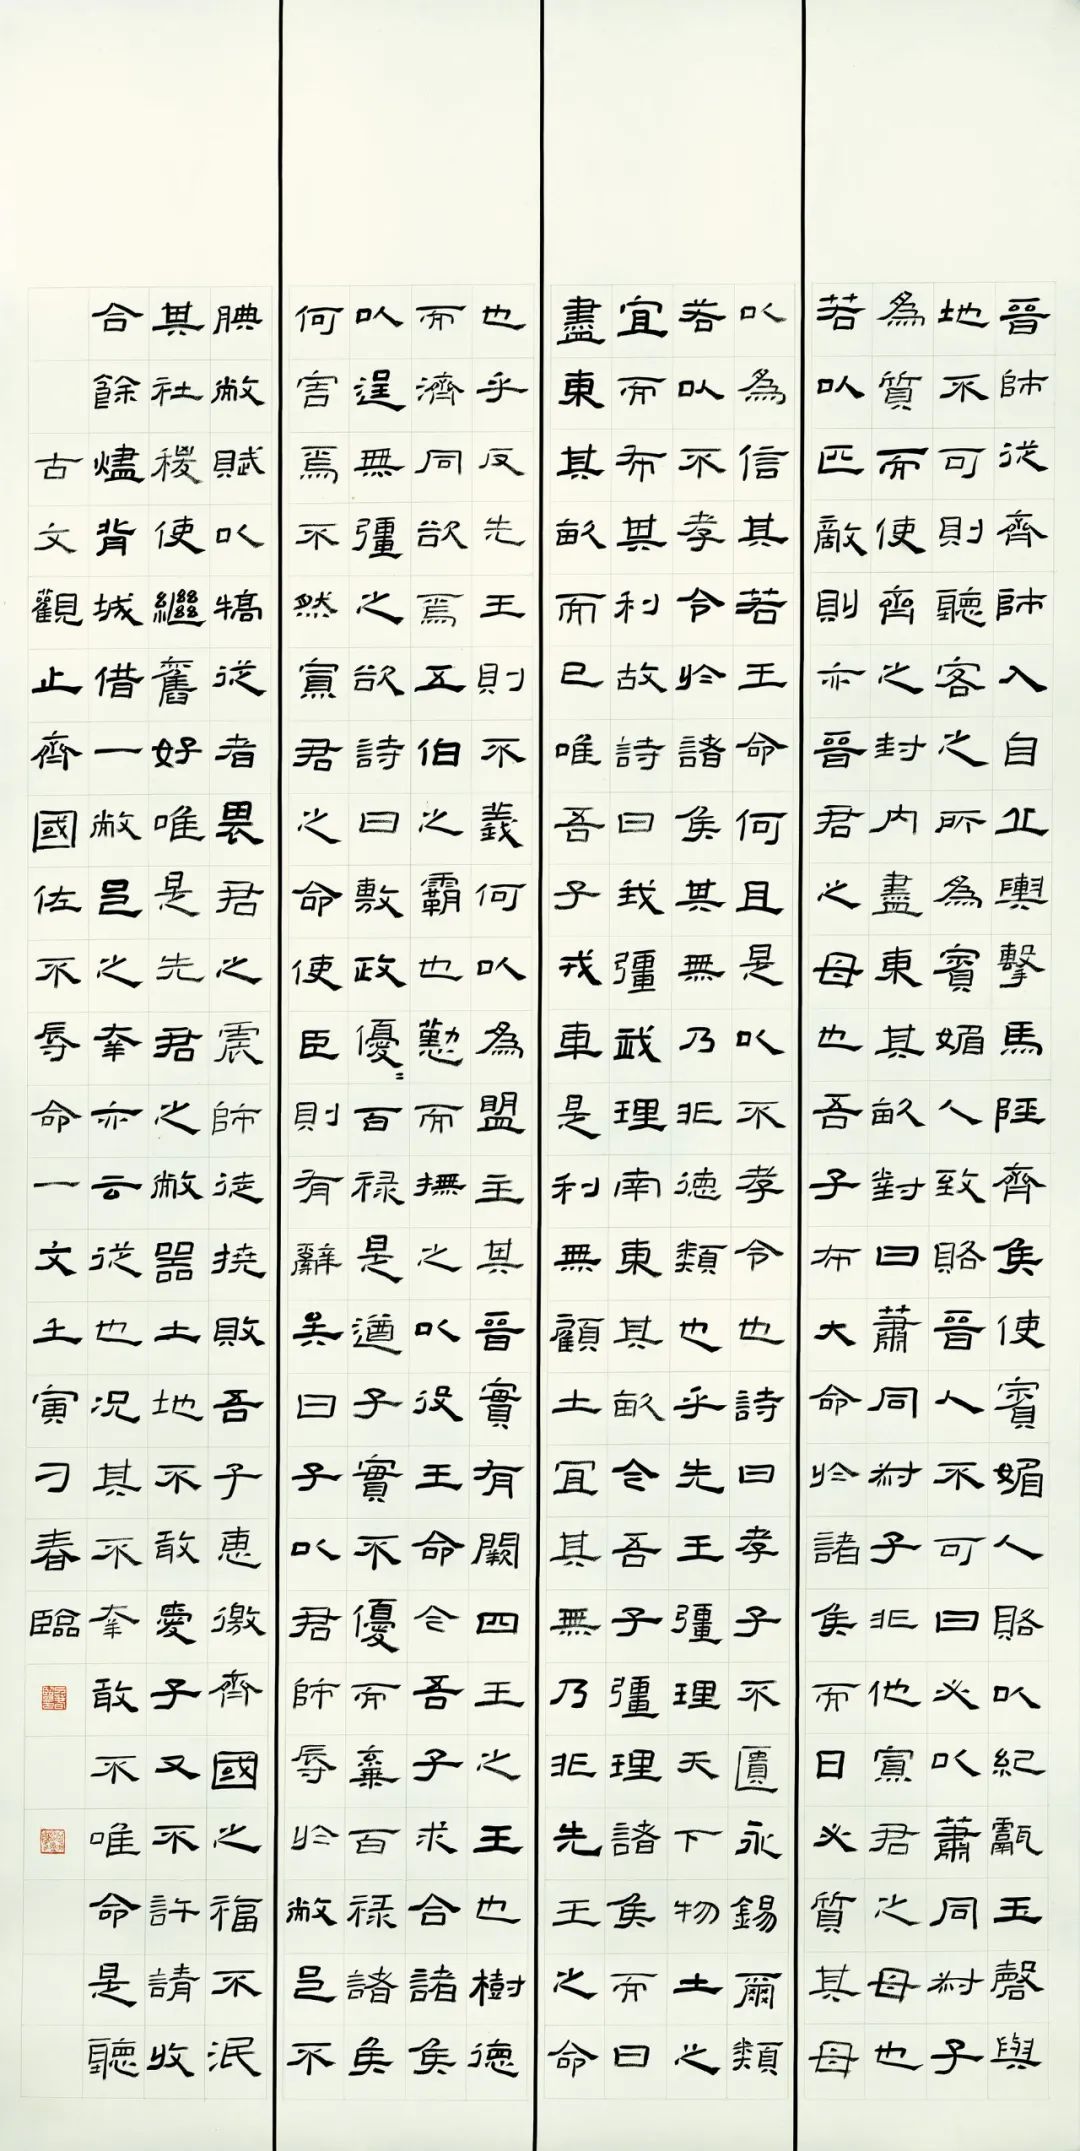 晉師從齊師入自丘輿擊馬陘齊侯使賓媚人賂以紀甗玉磬與
地不可則聽客之所為賓媚人致賂晉人不可曰必以蕭同叔子
為質而使齊之封內盡東其畝對曰蕭同叔子非他寡君之母也
若以匹敵則亦晉君之母也吾子布大命於諸侯而曰必質其母
以為信其若王命何且是以不孝令也詩曰孝子不匱永錫爾類
若以不孝令於諸侯其無乃非德類也乎先王彊理天下物土之
宜而布其利故詩曰我彊我理南東其畝今吾子彊理諸侯而曰
盡東其畝而已唯吾子戎車是利無顧土宜其無乃非先王之命
也乎反先王則不義何以為盟主其晉實有闕四王之王也樹德
而濟同欲焉五伯之霸也勤而撫之以役王命今吾子求合諸侯
以逞無彊之欲詩曰敷政優〻百祿是遒子實不優而棄百祿諸侯
何害焉不然寡君之命使臣則有辭矣曰子以君師辱於敝邑不
腆敝賦以犒從者畏君之震師徒撓敗吾子惠徼齊國之福不泯
其社稷使繼舊好唯是先君之敝器土地不敢愛子又不許請收
合餘燼背城借一敝邑之幸亦云從也況其不幸敢不唯命是聽
古文觀止齊國佐不辱命一文壬寅刁春臨